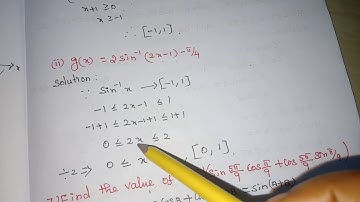 x+1 ≥ 0
x ≥ -1
∴ [-1, 1].
(ii) g(x) = 2 sin⁻¹ (2x-1) - π/4
Solution:
∵ sin⁻¹x → [-1, 1]
-1 ≤ 2x-1 ≤ 1
-1+1 ≤ 2x-1+1 ≤ 1+1
0 ≤ 2x ≤ 2
÷2 ⇒ 0 ≤ x [0, 1].
7] Find the value of sin 5π/9 cos π/9 + cos 5π/9 sin π/9)
sin(A+B)